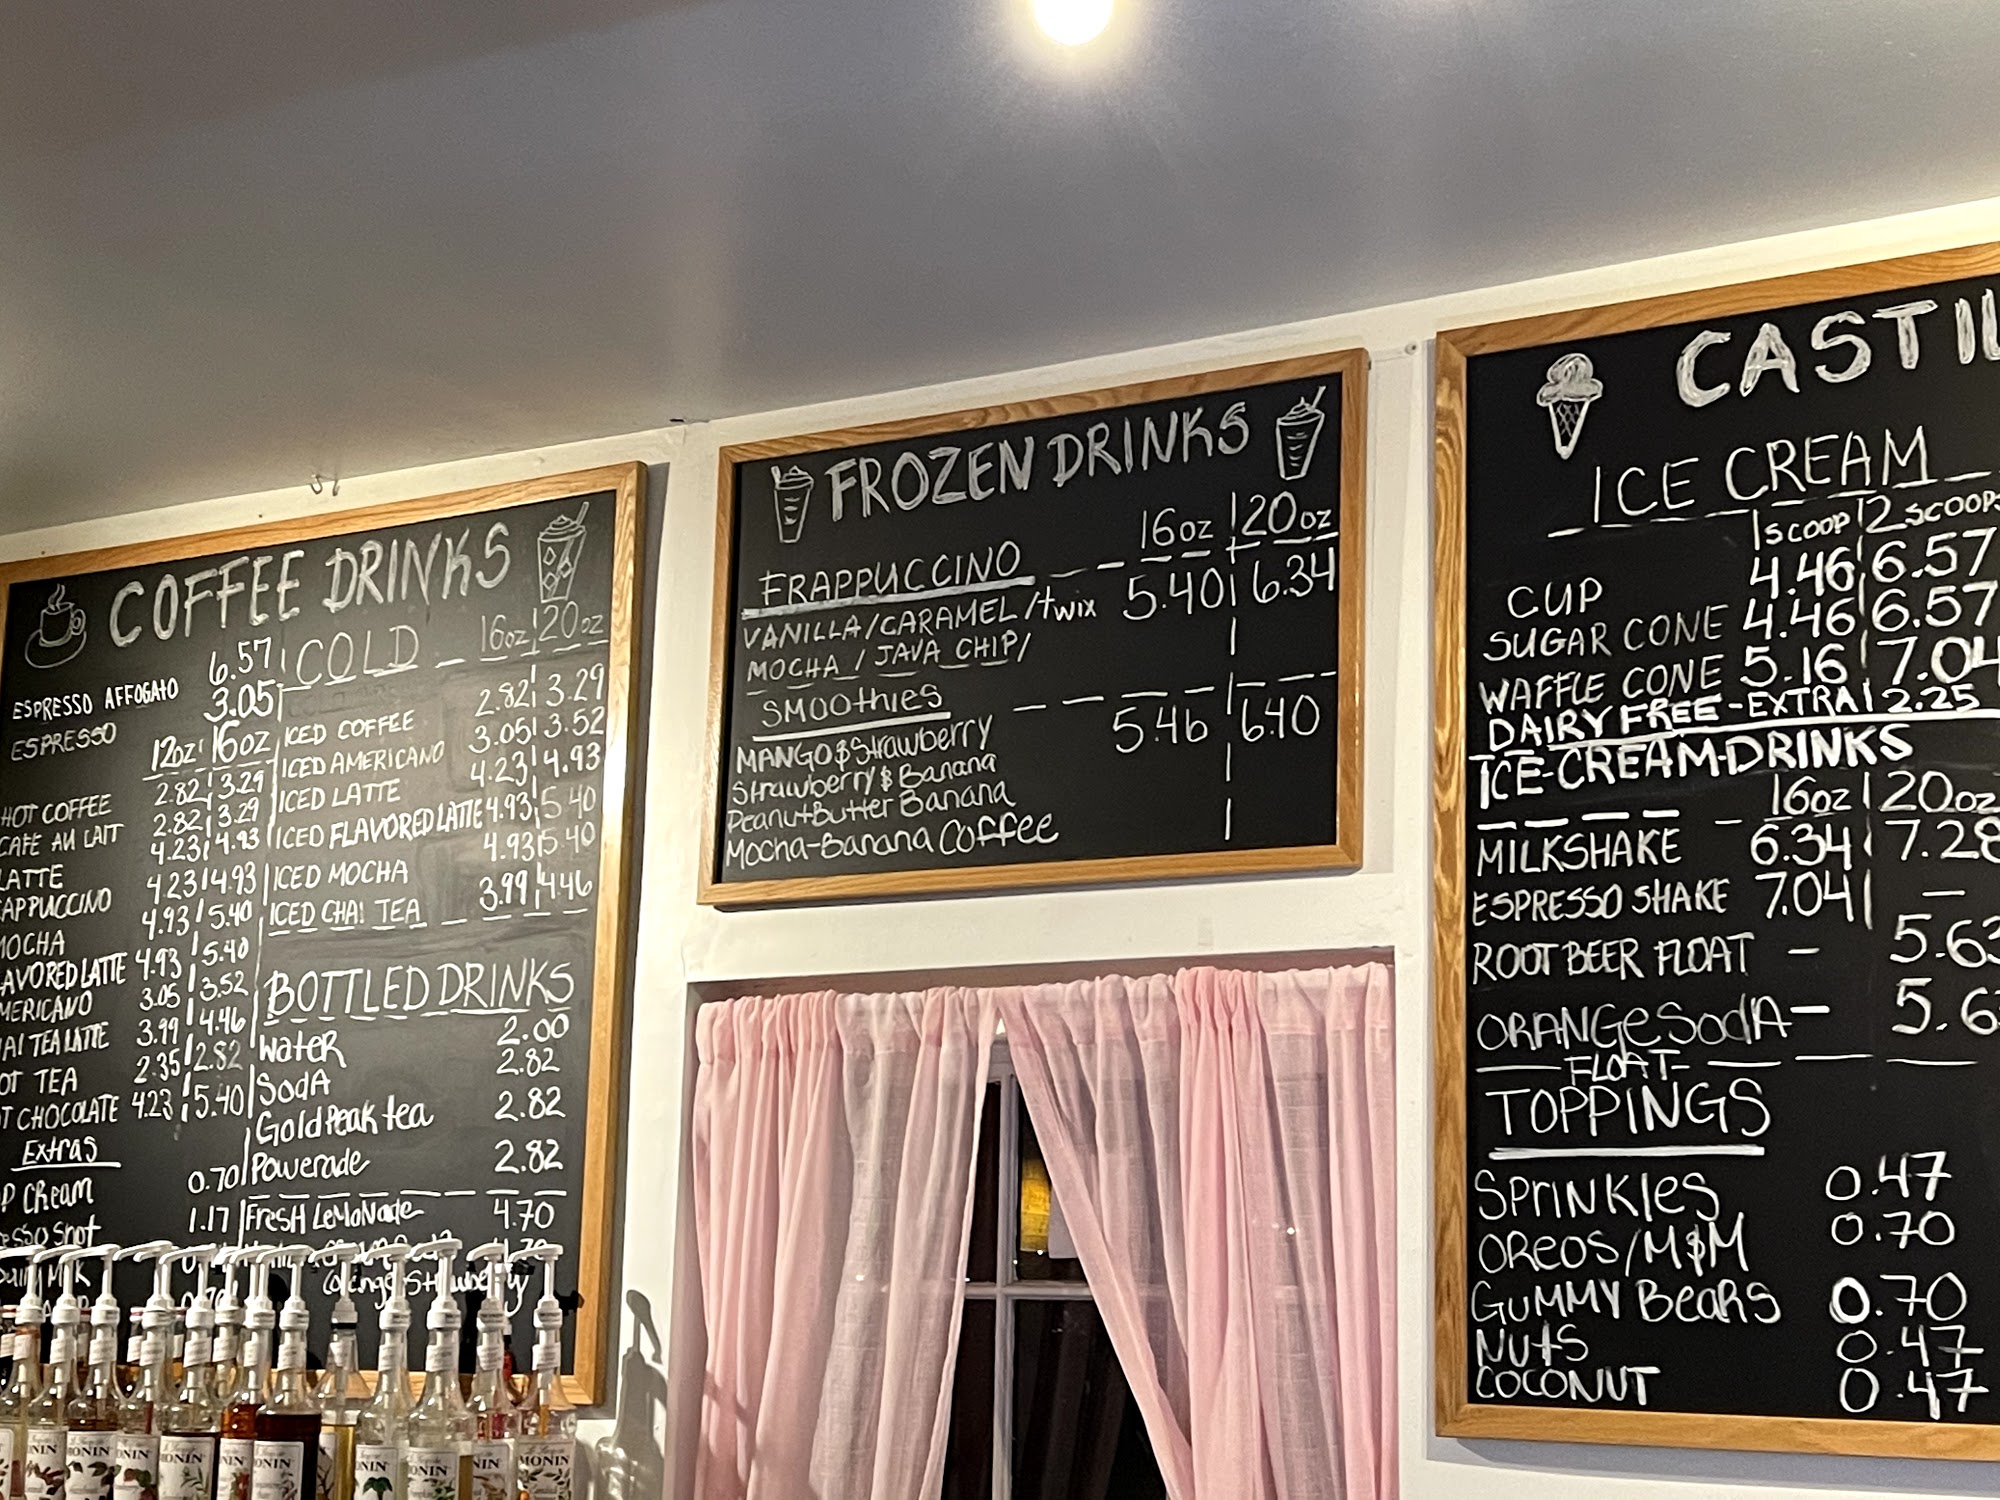 COFFEE DRINKS
ESPRESSO AFFOGATO 6.57
ESPRESSO 3.05
12oz 16oz
HOT COFFEE 2.82 3.29
CAFE AU LAIT 2.82 3.29
LATTE 4.23 4.93
APPUCCINO 4.23 4.93
MOCHA 4.93 5.40
AVORED LATTE 4.93 5.40
MERICANO 3.05 3.52
AI TEA LATTE 3.99 4.46
OT TEA 2.35 2.82
T CHOCOLATE 4.23 5.40
Extras
P CReam 0.70
esso Shot 1.17
COLD 16oz 20oz
ICED COFFEE 2.82 3.29
ICED AMERICANO 3.05 3.52
ICED LATTE 4.23 4.93
ICED FLAVORED LATTE 4.93 5.40
ICED MOCHA 4.93 5.40
ICED CHAI TEA 3.99 4.46
BOTTLED DRINKS
WateR 2.00
SodA 2.82
Gold Peak tea 2.82
Powerade 2.82
FResH LeMoNade 4.70
FROZEN DRINKS
16oz 20oz
FRAPPUCCINO 5.40 6.34
VANILLA/CARAMEL/twix
MOCHA / JAVA CHIP/
SMOOthIES 5.46 6.40
MANGO & Strawberry
Strawberry & Banana
Peanut Butter Banana
Mocha-Banana Coffee
CASTIL
ICE CREAM
1 scoop 2 scoops
CUP 4.46 6.57
SUGAR CONE 4.46 6.57
WAFFLE CONE 5.16 7.04
DAIRY FREE - EXTRA 2.25
ICE-CREAM-DRINKS
16oz 20oz
MILKSHAKE 6.34 7.28
ESPRESSO SHAKE 7.04 -
ROOT BEER FLOAT - 5.63
ORANGe SodA - 5.63
FLOAT
TOPPINGS
SPrINKles 0.47
OReos/M&M 0.70
GuMMY BeaRs 0.70
NUtS 0.47
COCONUT 0.47
MONIN
MONIN
MONIN
MONIN
MONIN
MONIN
MONIN